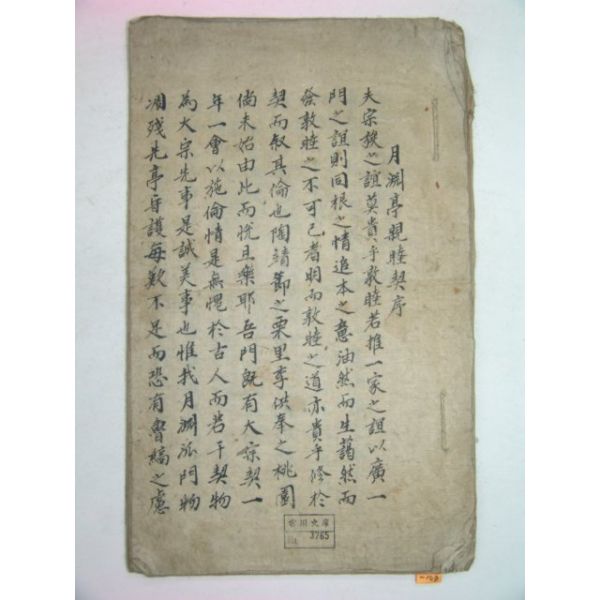 月淵亭親睦契序
夫宗族之誼莫貴乎敦睦若推一家之誼以廣一
門之誼則同根之情追本之意油然而生藹然而
發敦睦之不可已者明而敦睦之道亦貴乎修於
契而叙其倫也陶靖節之栗里李洪奉之桃園
尚未始由此而悅且樂耶吾門旣有大宗契一
年一會以施倫情是無愧於古人而若干契物
為大宗先事是誠美事也惟我月淵派門物
凋殘先亭守護每歎不足而恐有魯縞之慮
文庫
3765